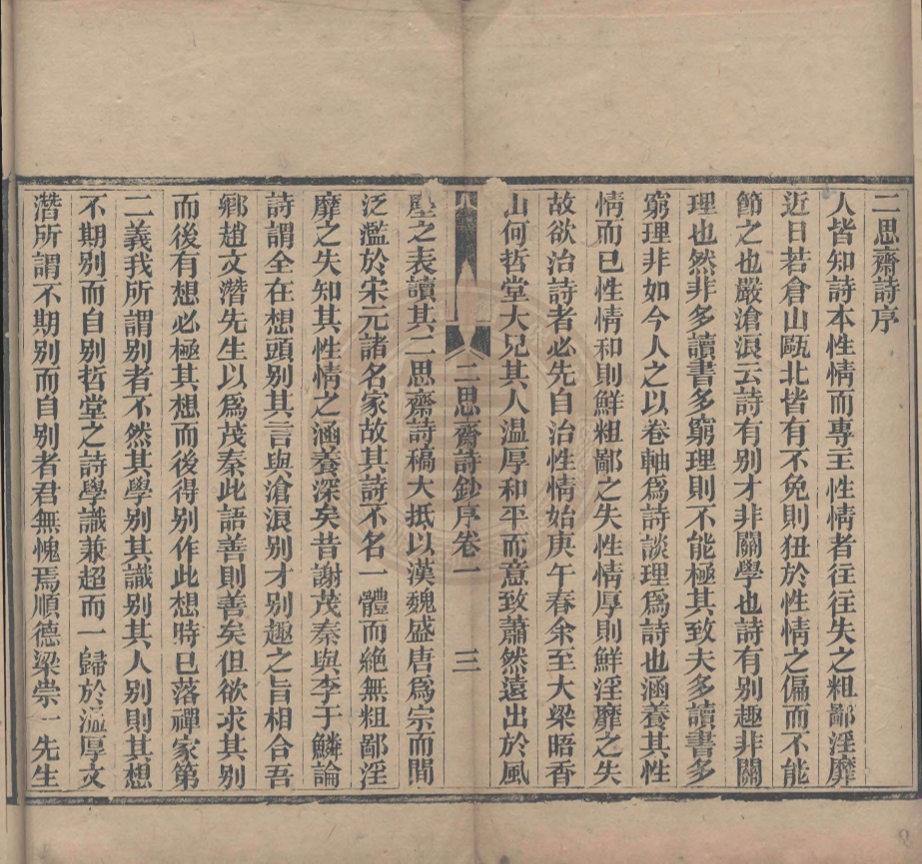 二思齋詩序
人皆知詩本性情而專主性情者往往失之粗鄙淫靡
近日若倉山甌北皆有不免則狃於性情之偏而不能
節之也嚴滄浪云詩有別才非關學也詩有別趣非關
理也然非多讀書多窮理則不能極其致夫多讀書多
窮理非如今人之以卷軸爲詩談理爲詩也涵養其性
情而已性情和則鮮粗鄙之失性情厚則鮮淫靡之失
故欲治詩者必先自治性情始庚午春余至大梁晤香
山何哲堂大兄其人温厚和平而意致蕭然遠出於風
二思齋詩鈔序卷一 三
塵之表讀其二思齋詩稿大抵以漢魏盛唐爲宗而間
泛濫於宋元諸名家故其詩不名一體而絶無粗鄙淫
靡之失知其性情之涵養深矣昔謝茂秦與李于鱗論
詩謂全在想頭別其言與滄浪別才別趣之旨相合吾
鄉趙文潛先生以爲茂秦此語善則善矣但欲求其別
而後有想必極其想而後得別作此想時已落禪家第
二義我所謂別者不然其學別其識別其人別則其想
不期別而自別哲堂之詩學識兼超而一歸於溫厚文
潛所謂不期別而自別者君無愧焉順德梁崇一先生